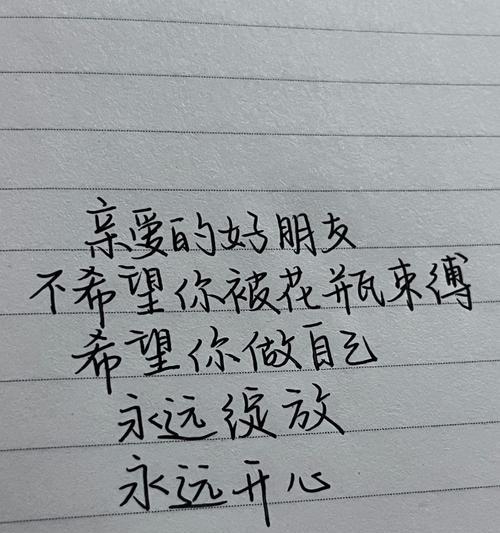 亲爱的好朋友
不希望你被花瓶束缚
希望你做自己
永远绽放
永远开心